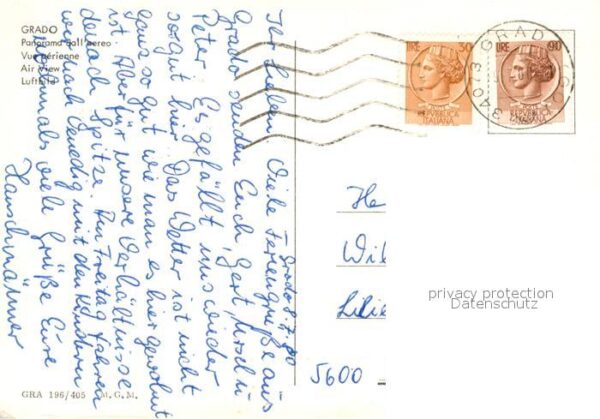 GRADO
Panorama dall'aereo
Vue aérienne
Air View
Luftbild
Grado 8.7.80
Ihr Lieben. Viele Feriengrüße aus
Grado senden Euch, Gert, Ursel u
Peter. Es gefällt uns wieder
sorgut hier. Das Wetter ist nicht
ganz so gut wie man es hier gewohnt
ist. Aber für unsere Verhältnisse
dennoch Spitze. Am Freitag fahren
wir nach Venedig mit den Kindern
Nochmals viele Grüße Eure
LIRE 30
REPUBBLICA
ITALIANA
LIRE 90
REPUBBLICA
ITALIANA
34073 GRADO
He
Wil
Lilie
5600
privacy protection
Datenschutz
GRA 196/405 M. G. M.